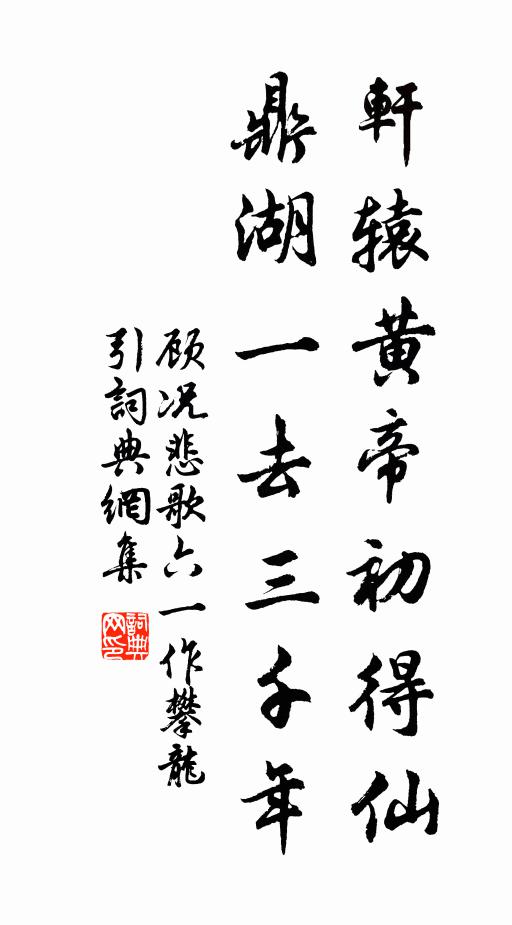 軒辕黄帝初得仙
鼎湖一去三千年
顾况悲歌六一作攀龍
引詞典網集
詞典网印